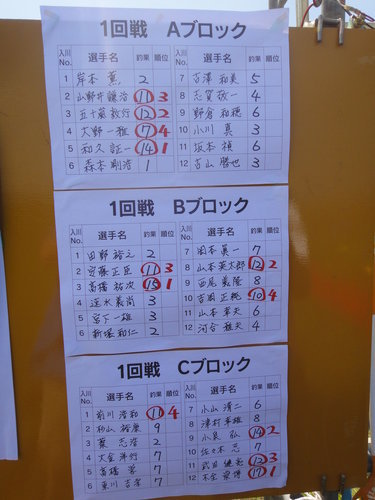 1回戦 Aブロック
入川No. 選手名 釣果 順位
1 岸本 薫 2
2 山野井 鎮浩 11 3
3 五十嵐 敦行 12 2
4 大野 一雅 7 4
5 和久 証一 14 1
6 森本 剛浩 1
入川No. 選手名 釣果 順位
7 古澤 和美 5
8 志賀 敬一 4
9 野倉 和穂 6
10 小川 真 3
11 坂本 禎 6
12 吉山 勝也 3
1回戦 Bブロック
入川No. 選手名 釣果 順位
1 田野 裕之 2
2 安藤 正臣 11 3
3 高橋 祐次 15 1
4 速水 義尚 3
5 宮下 一雄 3
6 新塚 和仁 2
入川No. 選手名 釣果 順位
7 岡本 眞一 7
8 山本 英太郎 12 2
9 西尾 義隆 8
10 吉岡 正 10 4
11 山本 幸夫 6
12 河合 雅夫 4
1回戦 Cブロック
入川No. 選手名 釣果 順位
1 前川 浩和 11 4
2 杉山 裕康 9
3 秦 志浩 2
4 大金 洋行 7
5 高橋 7
6 東川 7
入川No. 選手名 釣果 順位
7 小山 清二 6
8 津村 8
9 小泉 弘 14 2
10 佐々木 志 7
11 武田 健 12 3
12 木全 崇博 17 1